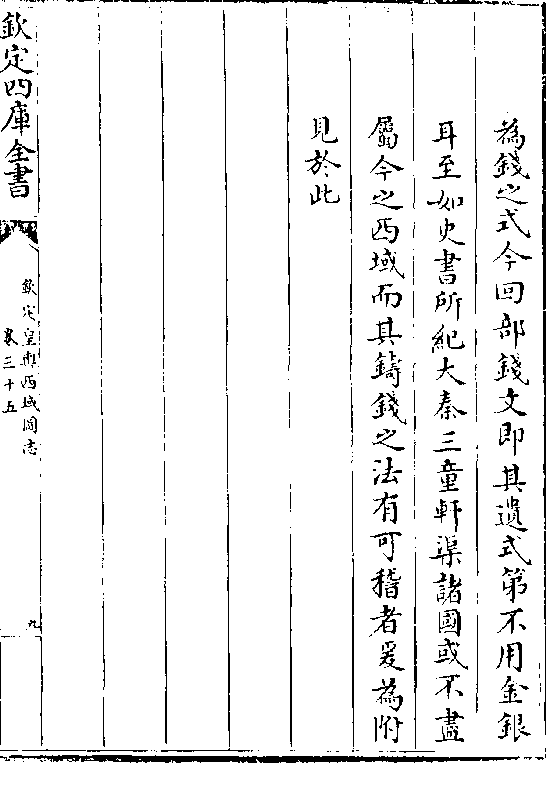 為錢之式今回部錢文即其遺式第不用金銀
耳至如史書所紀大秦三童軒渠諸國或不盡
屬今之西域而其鑄錢之法有可稽者爰為附
見於此
欽定四庫全書
欽定皇輿西域圖志
卷三十五
九